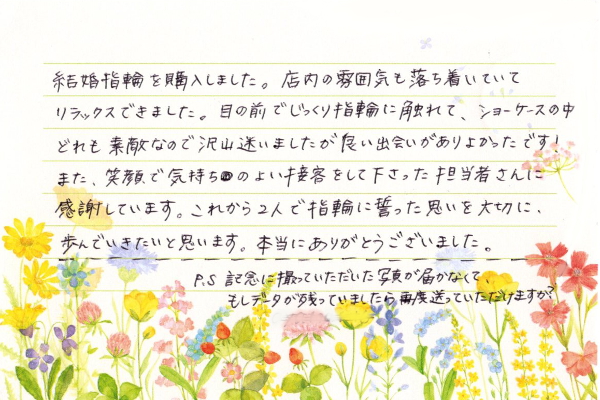 結婚指輪を購入しました。店内の雰囲気も落ち着いていて
リラックスできました。目の前でじっくり指輪に触れて、ショーケースの中
どれも素敵なので沢山迷いましたが良い出会いがありよかったです!
また、笑顔で気持ちのよい接客をして下さった担当者さんに
感謝しています。これから2人で指輪に誓った思いを大切に、
歩んでいきたいと思います。本当にありがとうございました。
P.S 記念に撮っていただいた写真が届かなくて、
もしデータが残っていましたら再度送っていただけますか?